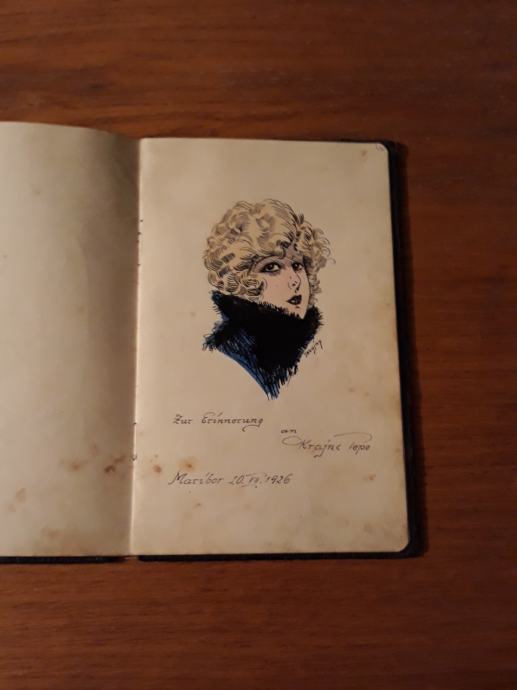 Zur Erinnerung
an
Krajnc Pepo
Maribor 20. VI. 1926